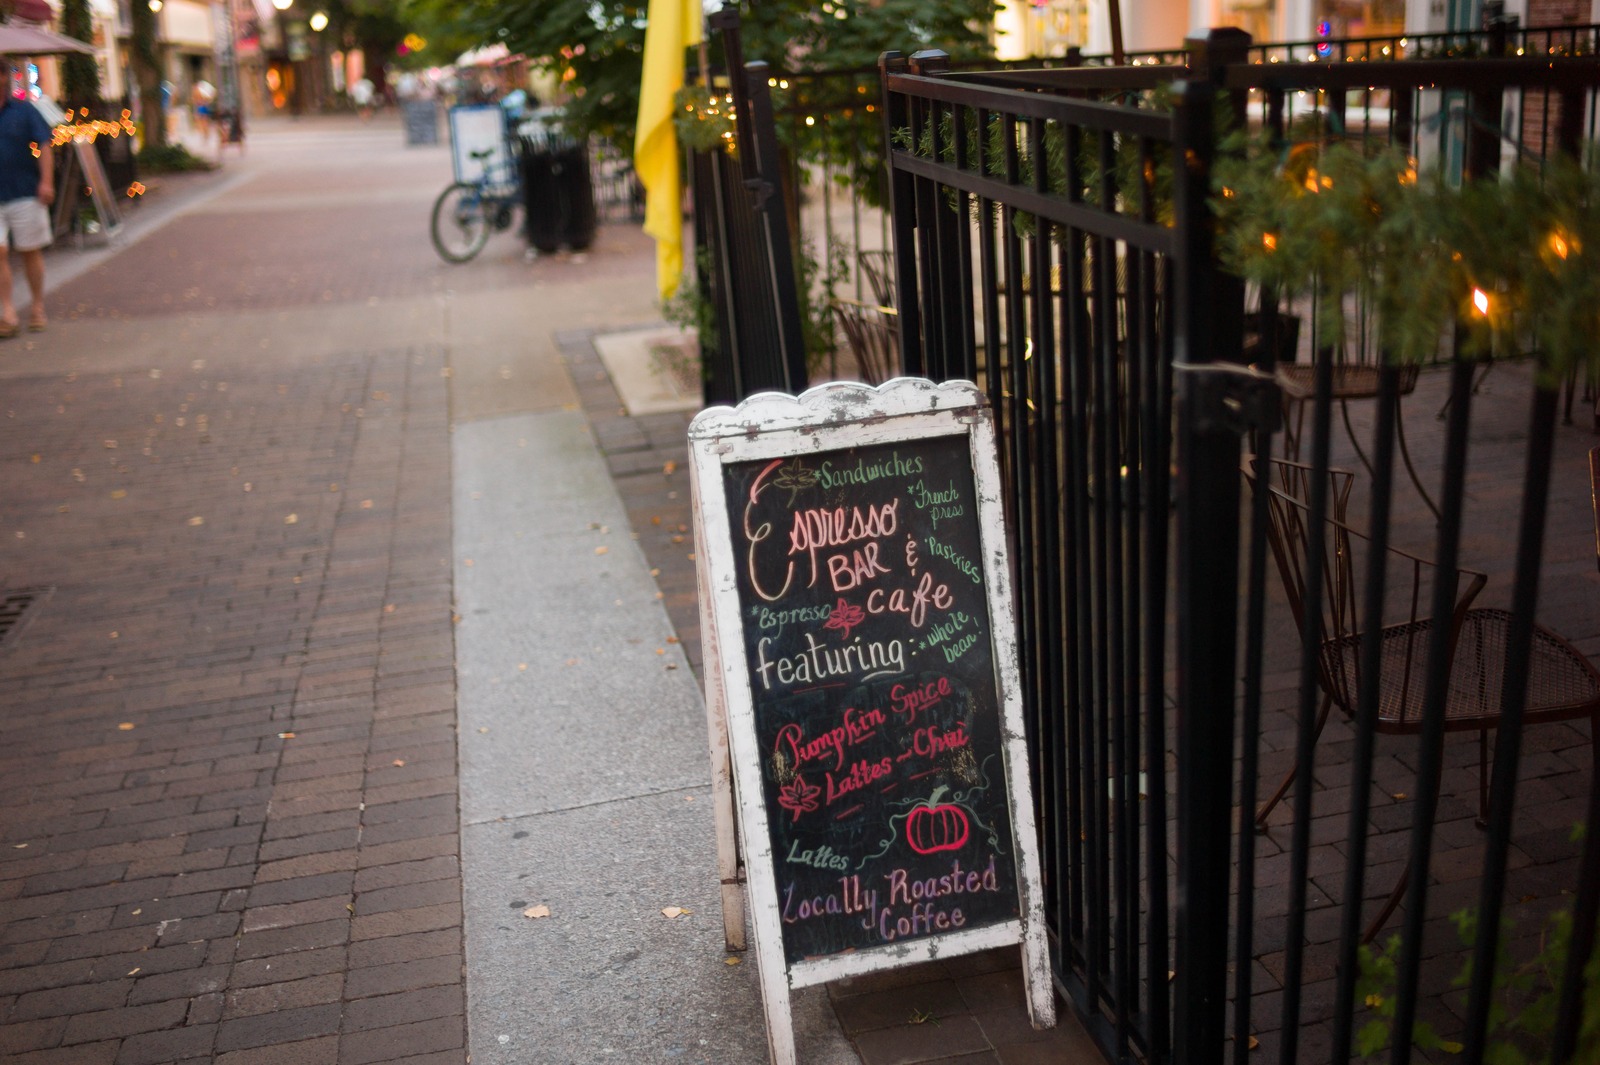 *Sandwiches
*French
press
Espresso
BAR &
*Pastries
cafe
*Espresso
*whole
bean!
featuring:
Pumpkin Spice
Lattes ~ Chai
Lattes
Locally Roasted
Coffee